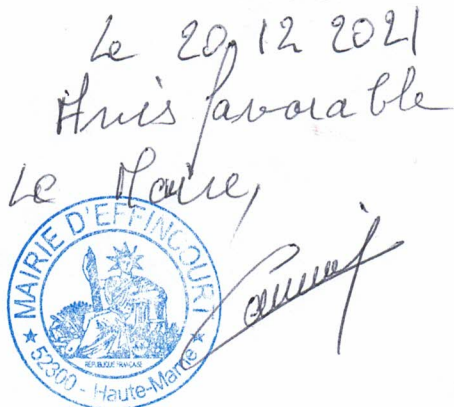 Le 20 12 2021
Avis favorable
Le Maire,
MAIRIE D'EFFINCOURT
RÉPUBLIQUE FRANÇAISE
★ 52300 - Haute-Marne ★